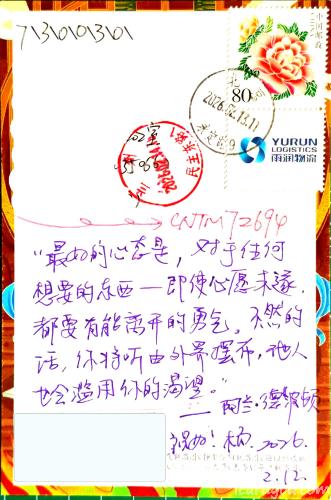 713010301
中国邮政
CHINA
80分
2026.02.13.11
YURUN
LOGISTICS
雨润物流
CNTM72694
"最好的心态是，对于任何
想要的东西—即使心愿未遂，
都要有能离开的勇气，不然的
话，你将听由外界摆布，他人
也会滥用你的渴望。"
—阿兰·德波顿
祝好！楠.2026.
2.12.